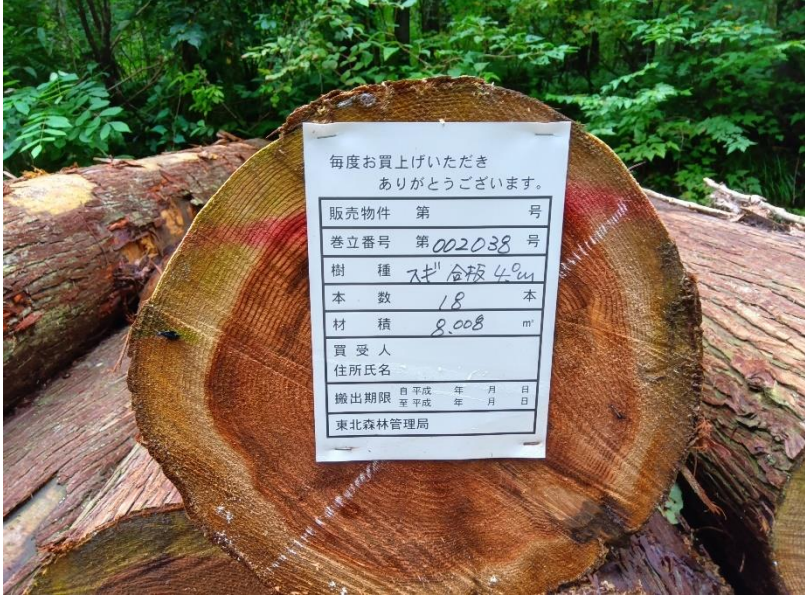 毎度お買上げいただき
ありがとうございます。
販売物件 第 号
巻立番号 第002038号
樹種 スギ 合板 4.0m
本数 18 本
材積 8.008 m³
買受人
住所氏名
搬出期限 自平成 年 月 日
至平成 年 月 日
東北森林管理局